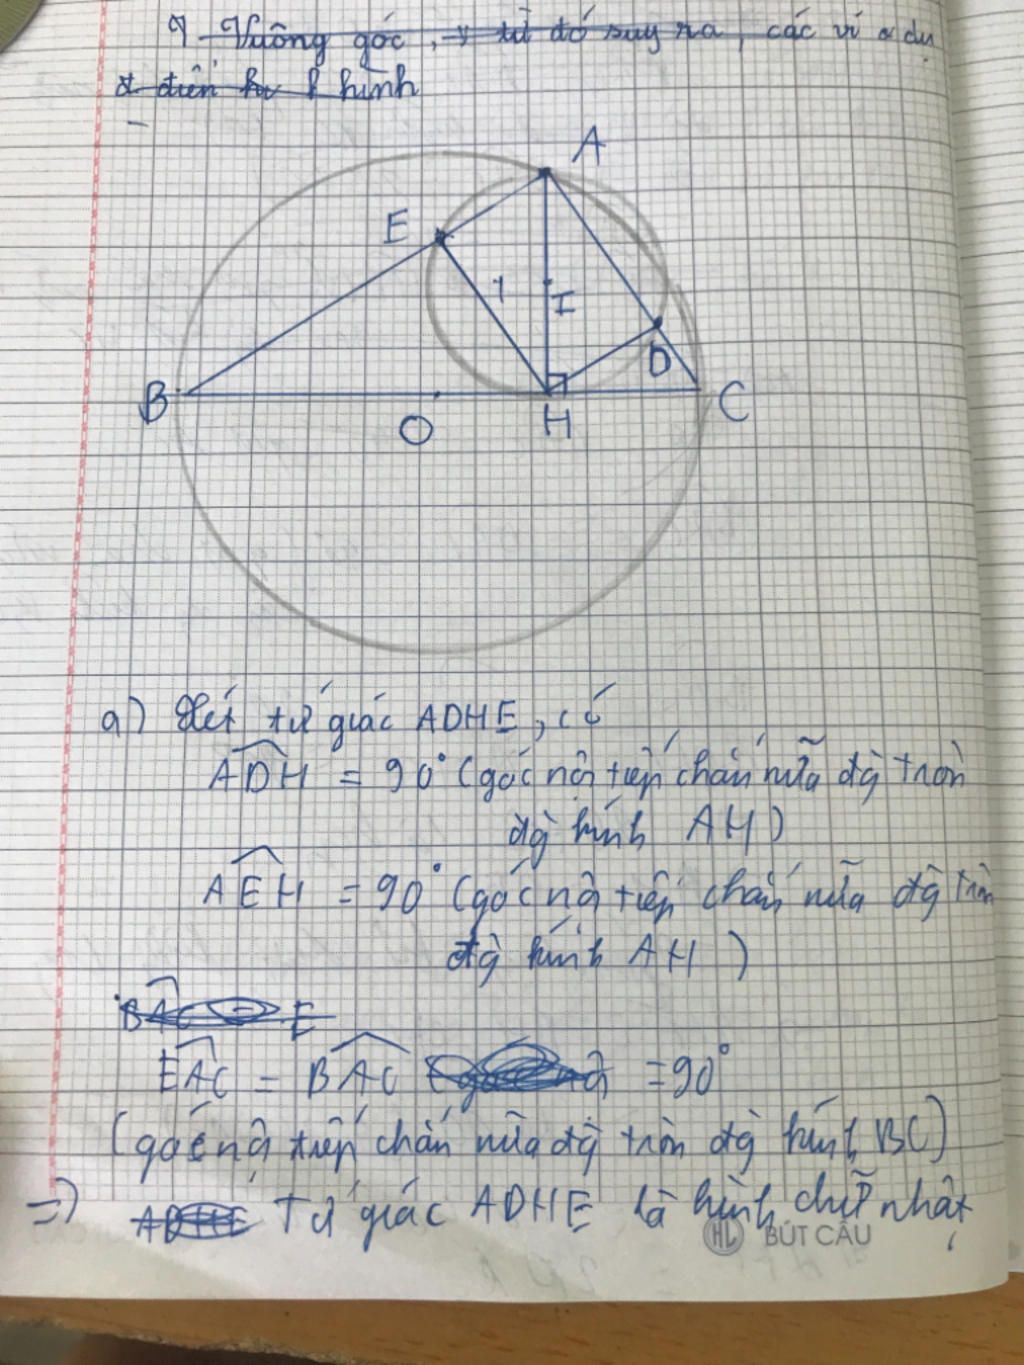 Vuông góc, từ đó suy ra, các ví dụ
điển hình
A
E
1
I
D
B
O
H
C
a) Xét tứ giác ADHE, có
ADH = 90° (góc nội tiếp chắn nữa đg tròn
đg kính AH)
AEH = 90° (góc nội tiếp chắn nữa đg tròn
đg kính AH)
BAC = E
EAC = BAC = 90°
(góc nội tiếp chắn nữa đg tròn đg kính BC)
=> Tứ giác ADHE là hình chữ nhật
HL BÚT CÂU